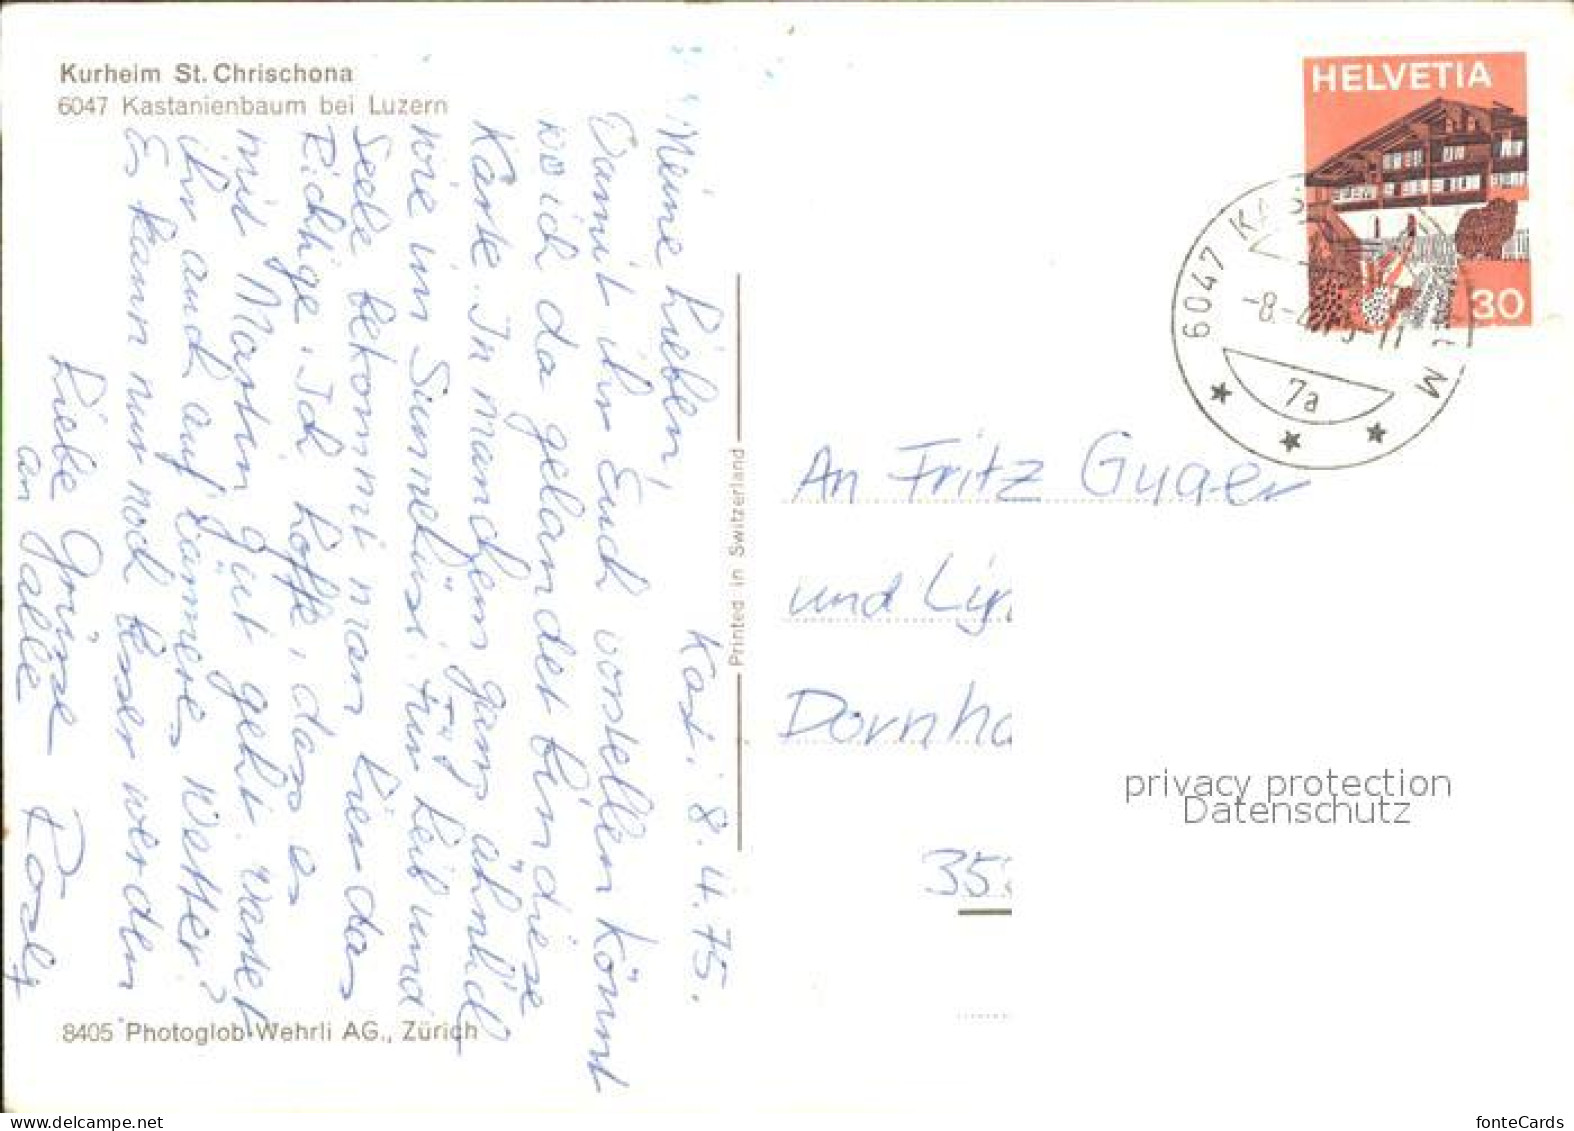 Kurheim St. Chrischona
6047 Kastanienbaum bei Luzern
Kast. 8.4.75.
Meine Lieben,
Damit ihr Euch vorstellen könnt
wo ich da gelandet bin diese
Karte. In manchem ganz ähnlich
wie im Sunnehüsi. Für Leib und
Seele bekommt man hier das
Richtige. Ich hoffe, dass es
mit Martin gut geht. Wartet
ihr auch auf wärmeres Wetter?
Es kann nur noch besser werden.
Liebe Grüsse
an alle Rosly
8405 Photoglob-Wehrli AG., Zürich
Printed in Switzerland
HELVETIA
30
6047 KAS M
-8.-4.75-11
7a
An Fritz Gyger
und
Dornha
35
privacy protection
Datenschutz
fonteCards